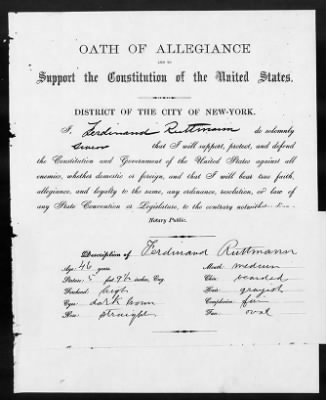 OATH OF ALLEGIANCE
AND TO
Support the Constitution of the United States.
DISTRICT OF THE CITY OF NEW-YORK.
I, Ferdinand Ruttmann do solemnly
swear that I will support, protect, and defend
the Constitution and Government of the United States against all
enemies, whether domestic or foreign, and that I will bear true faith,
allegiance, and loyalty to the same, any ordinance, resolution, or law of
any State Convention or Legislature, to the contrary
Notary Public.
Description of Ferdinand Ruttmann
Age: 46 years Mouth: medium
Stature: 5 feet 9½ inches, Eng. Chin: bearded
Forehead: high Hair: grayish
Eyes: dark brown Complexion: fair
Nose: straight Face: oval